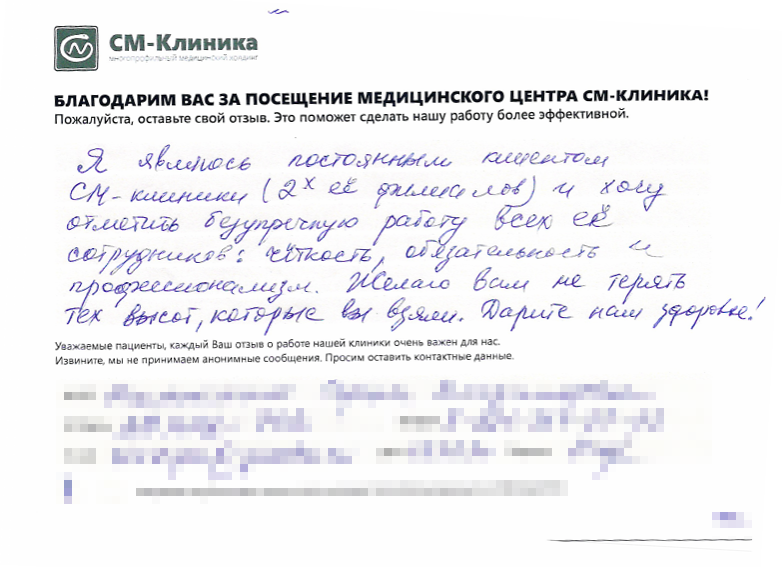 СМ-Клиника
многопрофильный медицинский холдинг
БЛАГОДАРИМ ВАС ЗА ПОСЕЩЕНИЕ МЕДИЦИНСКОГО ЦЕНТРА СМ-КЛИНИКА!
Пожалуйста, оставьте свой отзыв. Это поможет сделать нашу работу более эффективной.
Я являюсь постоянным клиентом
СМ-клиники (2х её филиалов) и хочу
отметить безупречную работу всех её
сотрудников: чёткость, обязательность и
профессионализм. Желаю вам не терять
тех высот, которые вы взяли. Дарите нам здоровье!
Уважаемые пациенты, каждый Ваш отзыв о работе нашей клиники очень важен для нас.
Извините, мы не принимаем анонимные сообщения. Просим оставить контактные данные.